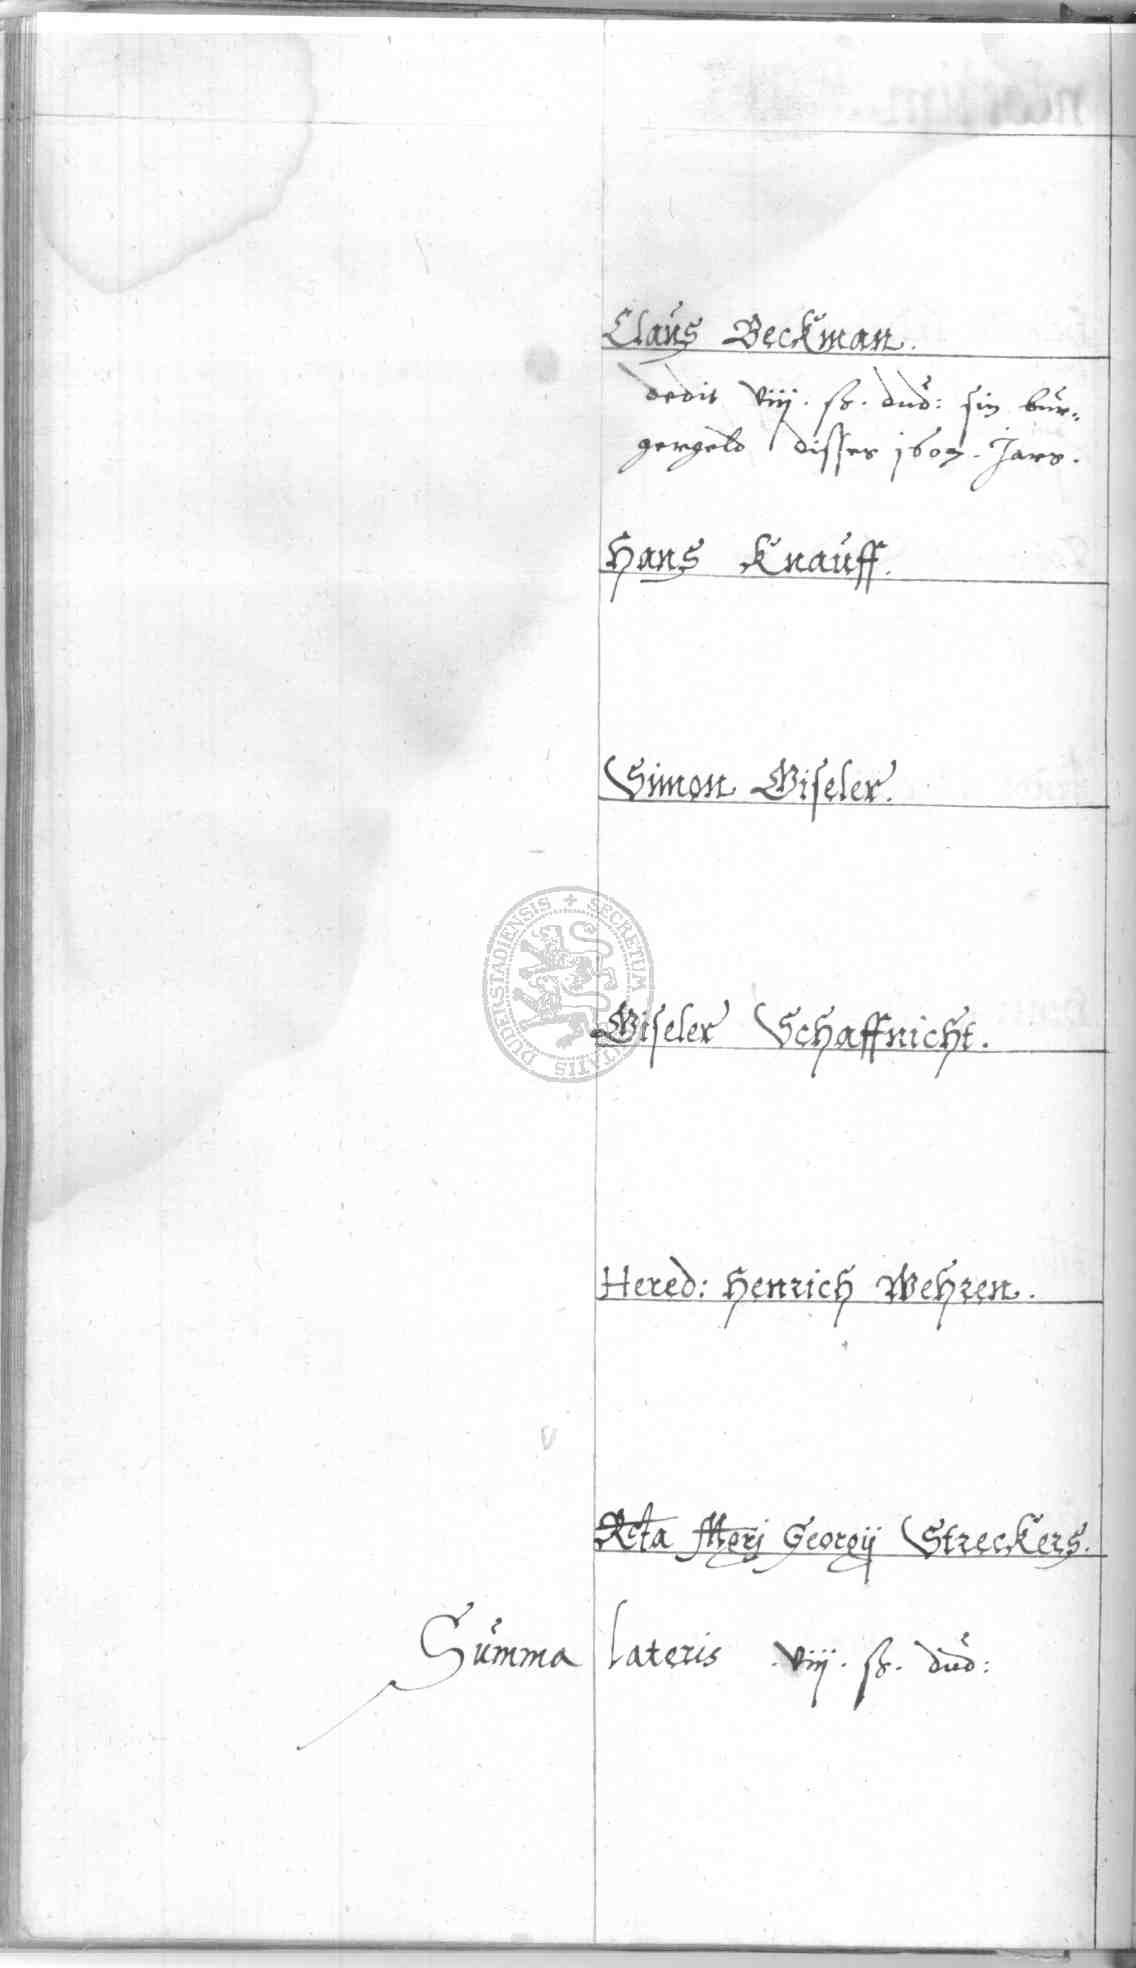 Claus Beckman.
dedit viij. ß. dud: sin bür-
gergeld disses 1607. Jars.
Hans Knauff.
Simon Giseler.
SECRETUM
DUDERSTADIENSIS
Giseler Schaffnicht.
Hered: Henrich Wehren.
Georgij Streckers.
Summa lateris viij. ß. dud: